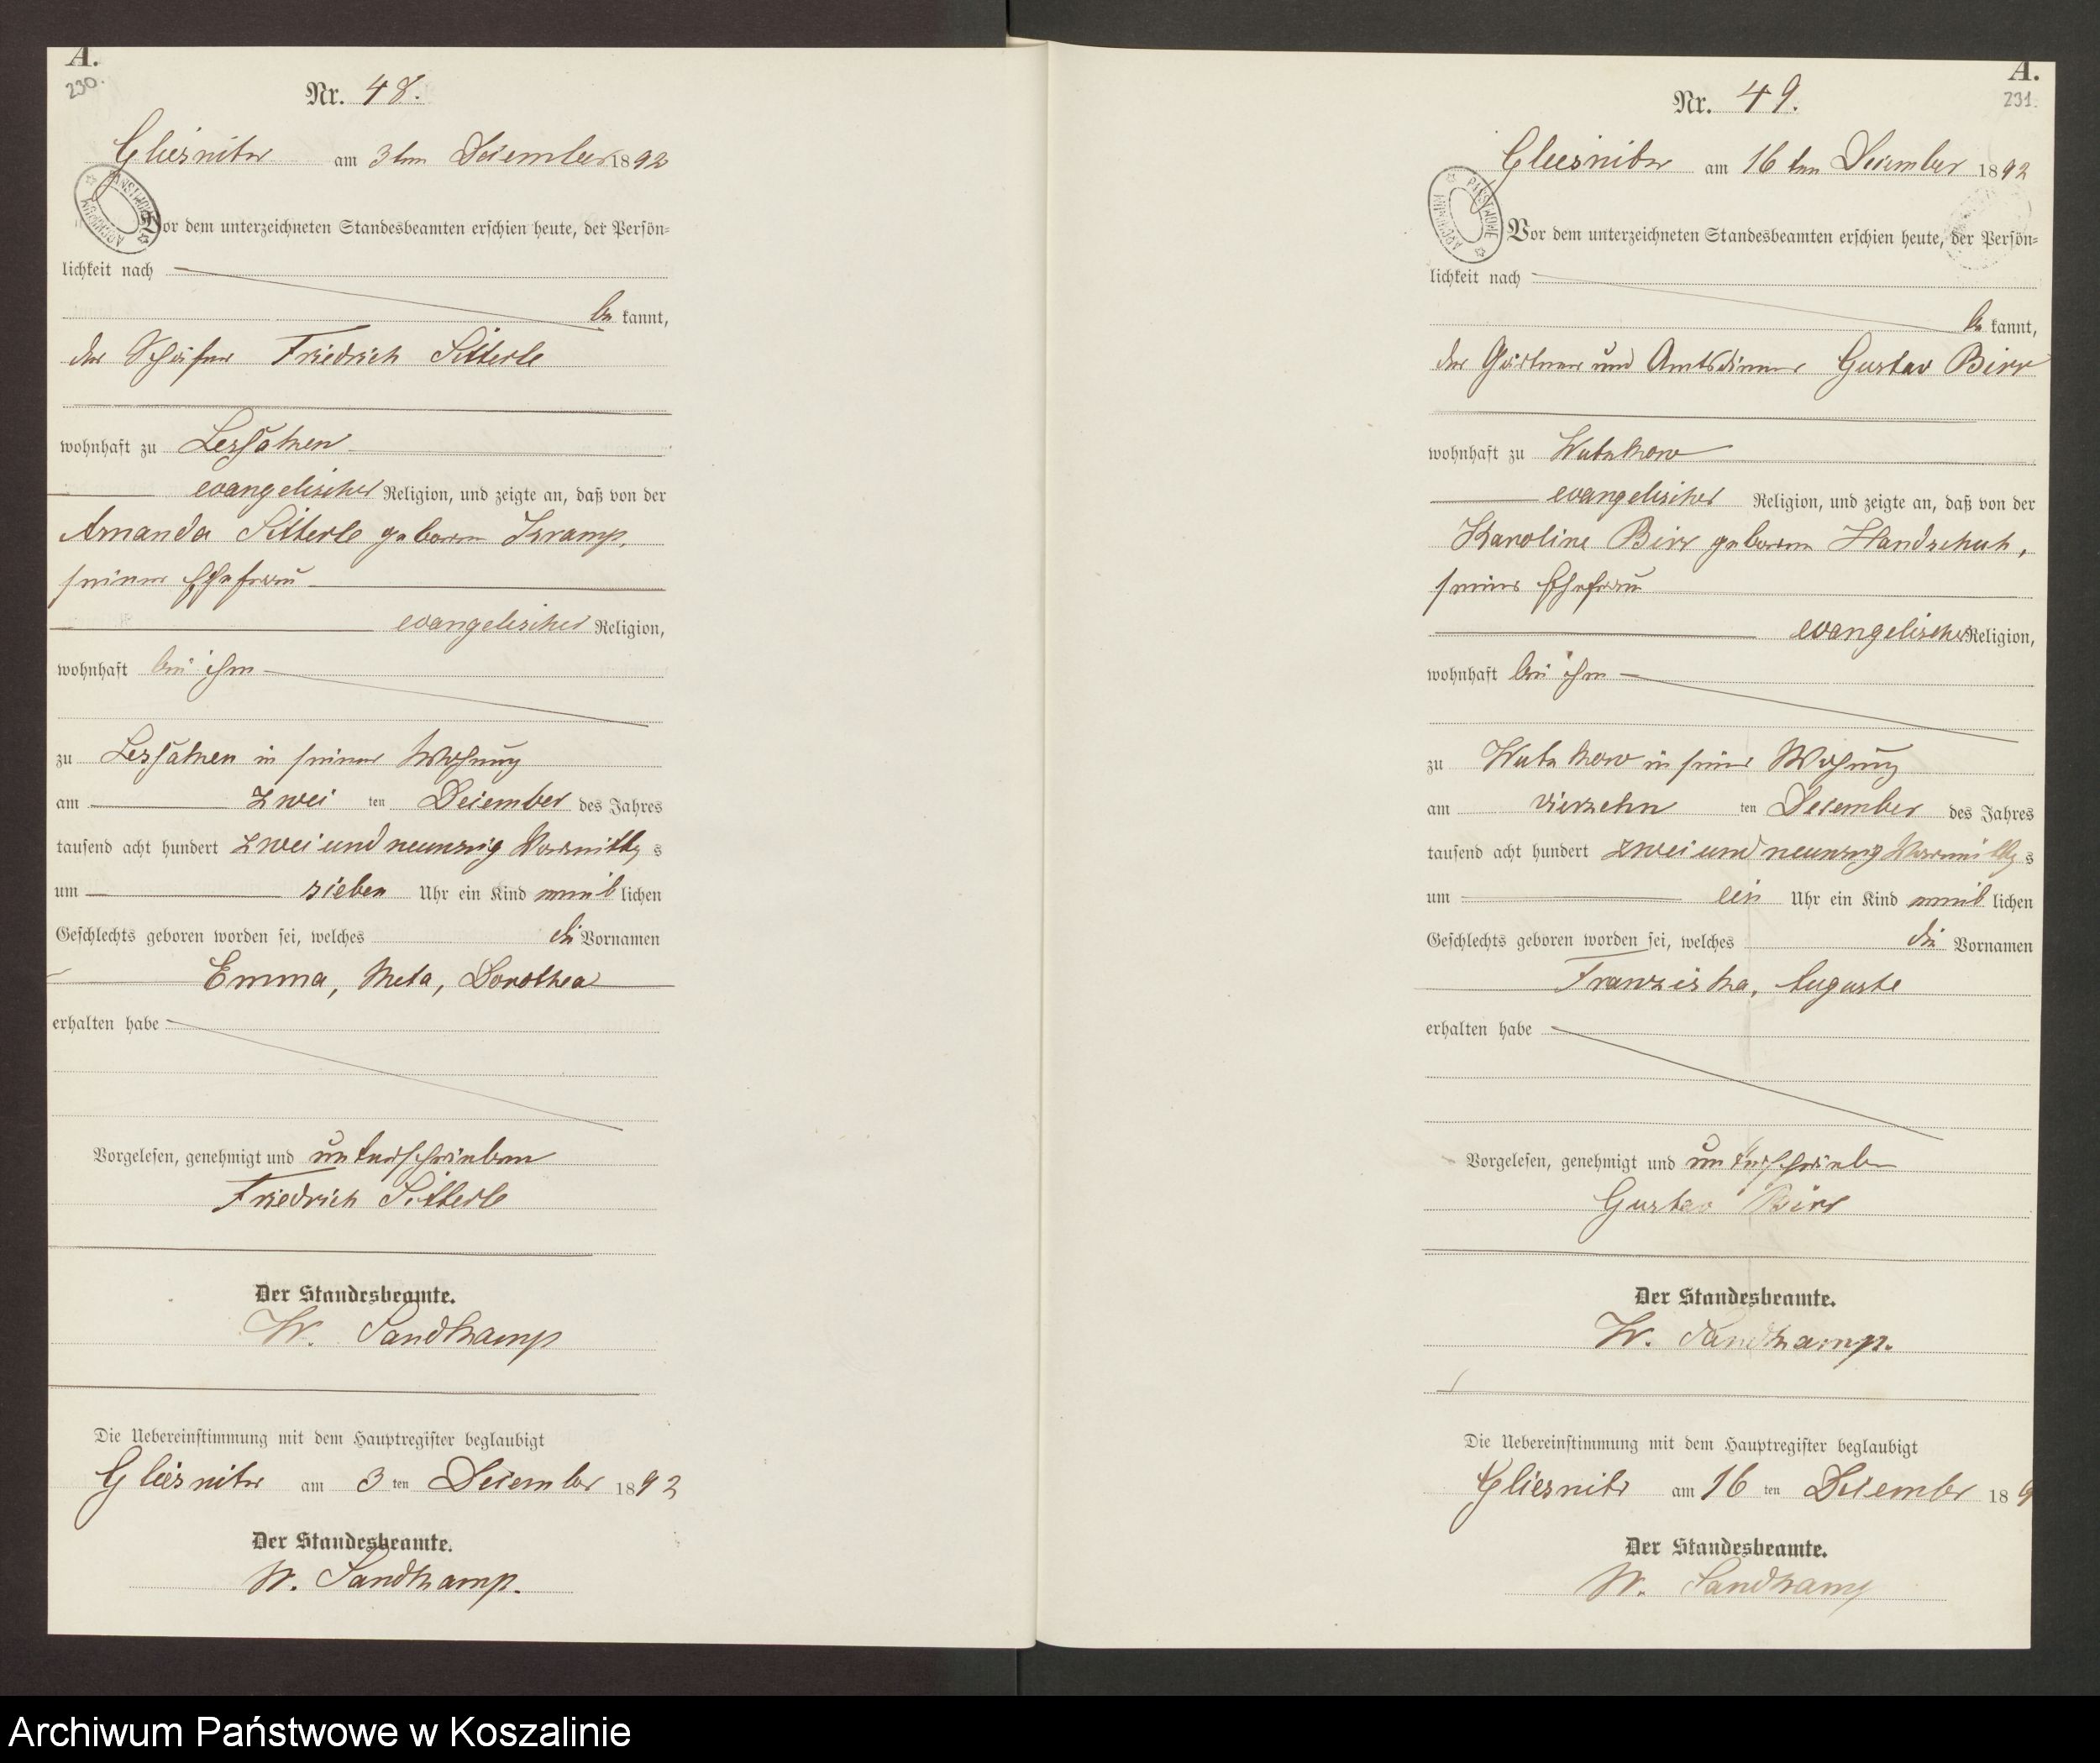 A.
230.
Nr. 48.
Gliesnitz am 3ten Dezember 1892
Vor dem unterzeichneten Standesbeamten erschien heute, der Persön=
lichkeit nach
be kannt,
der Schäfer Friedrich Sitterle
wohnhaft zu Lessaken
evangelischer Religion, und zeigte an, daß von der
Amanda Sitterle geboren Kramp,
seiner Ehefrau
evangelischer Religion,
wohnhaft bei ihm
zu Lessaken in seiner Wohnung
am zwei ten Dezember des Jahres
tausend acht hundert zwei und neunzig Vormittag s
um sieben Uhr ein Kind weib lichen
Geschlechts geboren worden sei, welches die Vornamen
Emma, Meta, Dorothea
erhalten habe
Vorgelesen, genehmigt und unterschrieben
Friedrich Sitterle
Der Standesbeamte.
W. Sandkamp
Die Uebereinstimmung mit dem Hauptregister beglaubigt
Gliesnitz am 3 ten Dezember 1892
Der Standesbeamte.
W. Sandkamp.
A.
231.
Nr. 49.
Gliesnitz am 16 ten Dezember 1892
Vor dem unterzeichneten Standesbeamten erschien heute, der Persön=
lichkeit nach
be kannt,
der Gärtner und Amtsdiener Gustav Birr
wohnhaft zu
evangelischer Religion, und zeigte an, daß von der
Karoline Birr geboren Handschuh,
seiner Ehefrau
evangelischer Religion,
wohnhaft bei ihm
zu in seiner Wohnung
am vierzehn ten Dezember des Jahres
tausend acht hundert zwei und neunzig Vormittag s
um ein Uhr ein Kind weib lichen
Geschlechts geboren worden sei, welches die Vornamen
Franziska, Auguste
erhalten habe
Vorgelesen, genehmigt und unterschrieben
Gustav Birr
Der Standesbeamte.
W. Sandkamp.
Die Uebereinstimmung mit dem Hauptregister beglaubigt
Gliesnitz am 16 ten Dezember 189
Der Standesbeamte.
W. Sandkamp
Archiwum Państwowe w Koszalinie